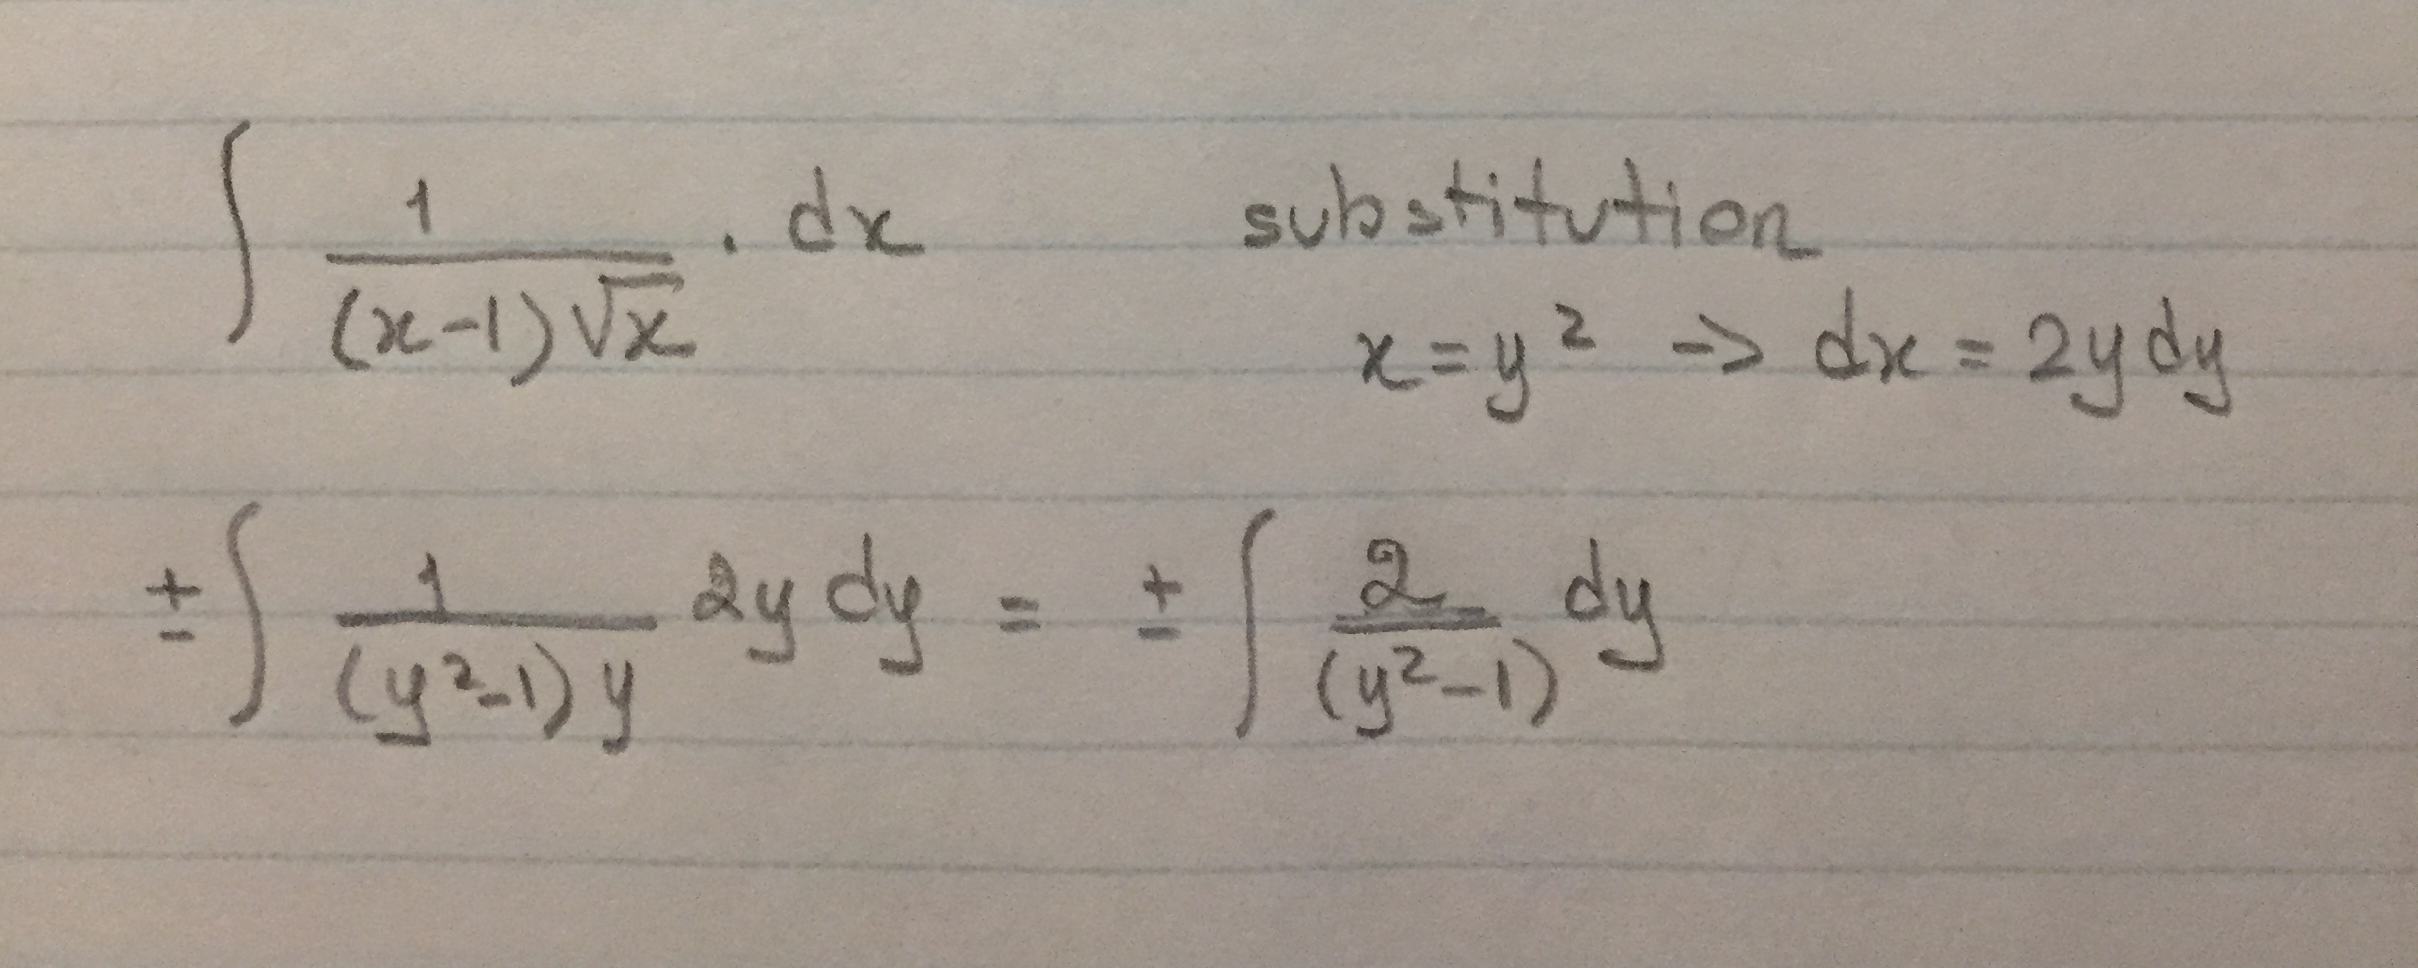 ∫ 1/((x-1)√x) . dx substitution
x = y² -> dx = 2y dy
± ∫ 1/((y²-1) y) 2y dy = ± ∫ 2/(y²-1) dy